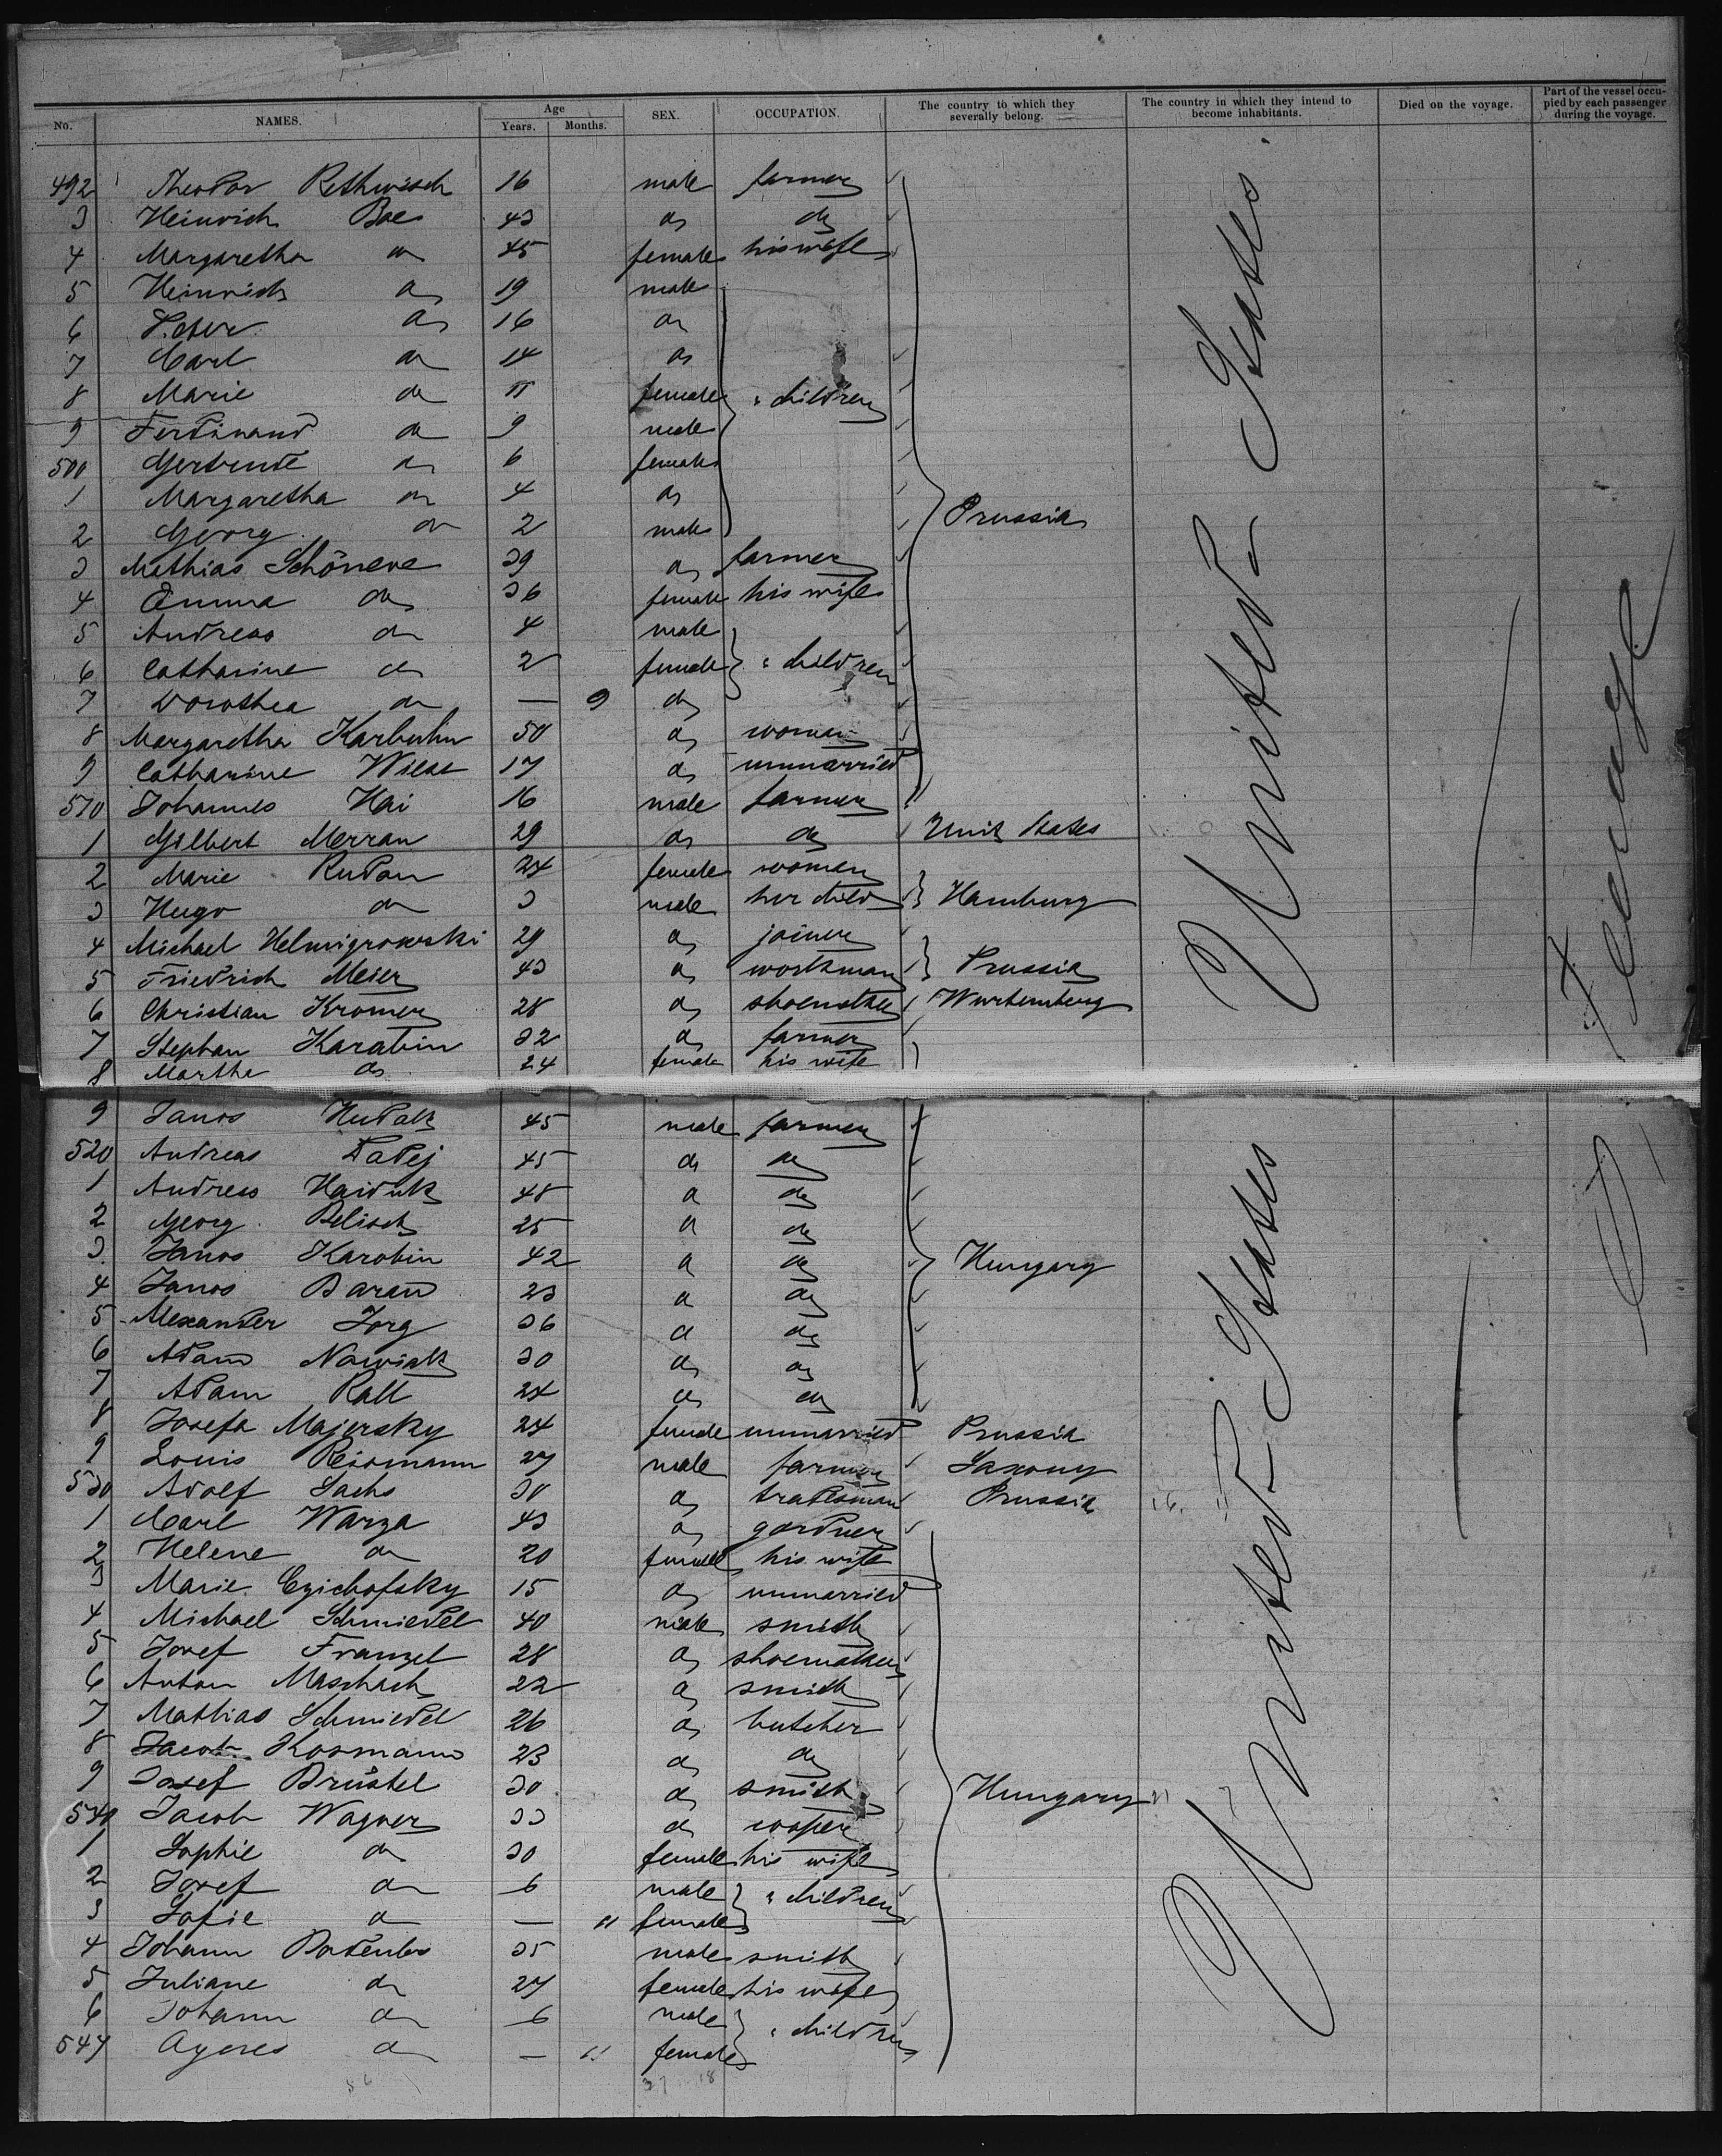 No. NAMES. Age Years. Months. SEX. OCCUPATION. The country to which they severally belong. The country in which they intend to become inhabitants. Died on the voyage. Part of the vessel occupied by each passenger during the voyage.
492 Theodor Rethwisch 16 male farmer
3 Heinrich Boe 43 do do
4 Margaretha do 45 female his wife
5 Heinrich do 19 male
6 Peter do 16 do
7 Carl do 14 do
8 Marie do 11 female " children
9 Ferdinand do 9 male
500 Gertrude do 6 female
1 Margaretha do 4 do Prussia
2 Georg do 2 male
3 Mathias 39 do farmer
4 Emma do 36 female his wife
5 Andreas do 4 male
6 Catharine do 2 female " children
7 Dorothea do — 9 do
8 Margaretha 50 do woman
9 Catharine Wiese 17 do unmarried
510 Johannes Hai 16 male farmer
1 Gilbert Merran 29 do do Unit States
2 Marie Rudau 24 female woman
3 Hugo do 3 male her child Hamburg
4 Michael 29 do joiner
5 Friedrich Meier 43 do workman Prussia
6 Christian Kromer 28 do shoemaker Wurtemberg
7 Stephan Karabin 32 do farmer
8 Martha do 24 female his wife
9 Janos Hudak 45 male farmer
520 Andreas 45 do do
1 Andreas Haiduk 48 do do
2 Georg Belisch 25 do do
3 Janos Karobin 42 do do Hungary
4 Janos Baran 23 do do
5 Alexander Jorg 36 do do
6 Adam Nawiak 30 do do
7 Adam Rall 24 do do
8 Josefa Majersky 24 female unmarried Prussia
9 Louis Reismann 27 male farmer Saxony
530 Adolf Sachs 30 do tradesman Prussia
1 Carl Warza 43 do gardner
2 Helene do 20 female his wife
3 Marie Czichofsky 15 do unmarried
4 Michael Schmiedel 40 male smith
5 Josef Franzel 28 do shoemaker
6 Anton Maschach 22 do smith
7 Mathias Schmiedel 26 do butcher
8 Jacob Kosmann 23 do do
9 Josef Brüstel 30 do smith Hungary
540 Jacob Wagner 33 do cooper
1 Sophie do 30 female his wife
2 Josef do 6 male " children
3 Sofie do — 11 female
4 Johann 35 male smith
5 Juliane do 27 female his wife
6 Johann do 6 male " children
547 Agnes do — 11 female
United States
United States
Steerage